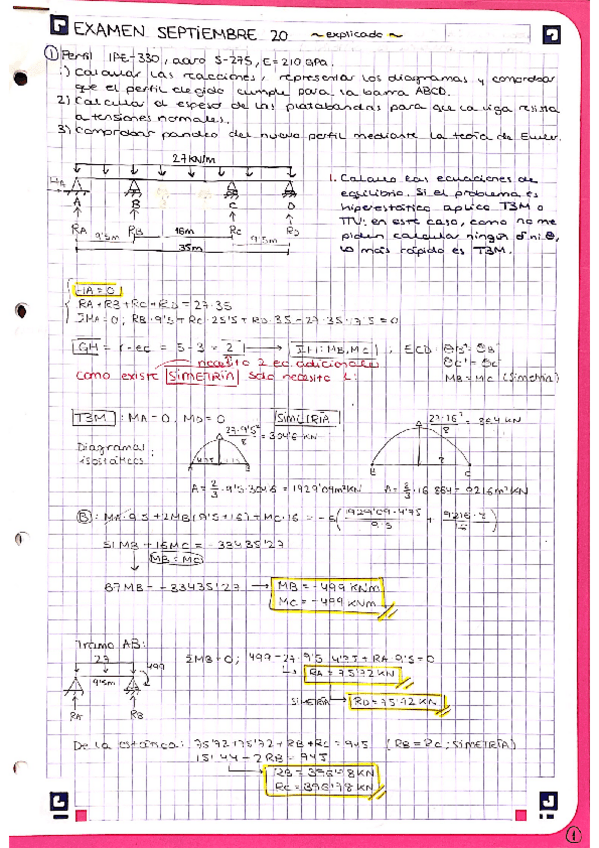 EXAMEN SEPTIEMBRE 20 ~explicado~
① Perfil IPE-330, acero S-275, E=210 GPa.
1) Calcular las reacciones, representar los diagramas y comprobar
que el perfil elegido cumple para la barra ABCD.
2) Calcular el espesor de las platabandas para que la viga resista
a tensiones normales.
3) Comprobar pandeo del nuevo perfil mediante la teoría de Euler.
27 kN/m
HA
A B C D
RA RB RC RD
9'5m 16m 9'5m
35m
1. Calculo las ecuaciones de
equilibrio. Si el problema es
hiperestático aplico T3M o
TTV; en este caso, como no me
piden calcular ningún δ ni θ,
lo más rápido es T3M.
HA = 0
RA + RB + RC + RD = 27·35
ΣMA = 0; RB·9'5 + RC·25'5 + RD·35 - 27·35·17'5 = 0
GH = r - ec = 5 - 3 = 2 → IH: MB, MC, ECD:
necesito 2 ec adicionales
Como existe SIMETRÍA solo necesito 1:
MB = MC (simetría)
T3M: MA = 0, MD = 0 SIMETRÍA
Diagramas
isostáticos:
27·9'5²/8 = 304'6 kN
27·16²/8 = 864 kN
A = 2/3 · 9'5 · 304'6 = 1929'09 m²kN
A = 2/3 · 16 · 864 = 9216 m²kN
Ⓑ: MA·9'5 + 2MB(9'5+16) + MC·16 = -6(1929'09·4'75/9'5 +
51 MB + 16 MC = -33435'27
MB = MC
67 MB = -33435'27 → MB = -499 kNm
MC = -499 kNm
Tramo AB:
27
499
9'5m
RA RB
ΣMB = 0; 499 - 27·9'5·4'75 + RA·9'5 = 0
RA = 75'72 kN
SIMETRÍA → RD = 75'72 kN
De la estática: 75'72 + 75'72 + RB + RC = 945 (RB = RC; SIMETRÍA)
151'44 - 2RB = 945
RB = 396'78 kN
RC = 396'78 kN
①